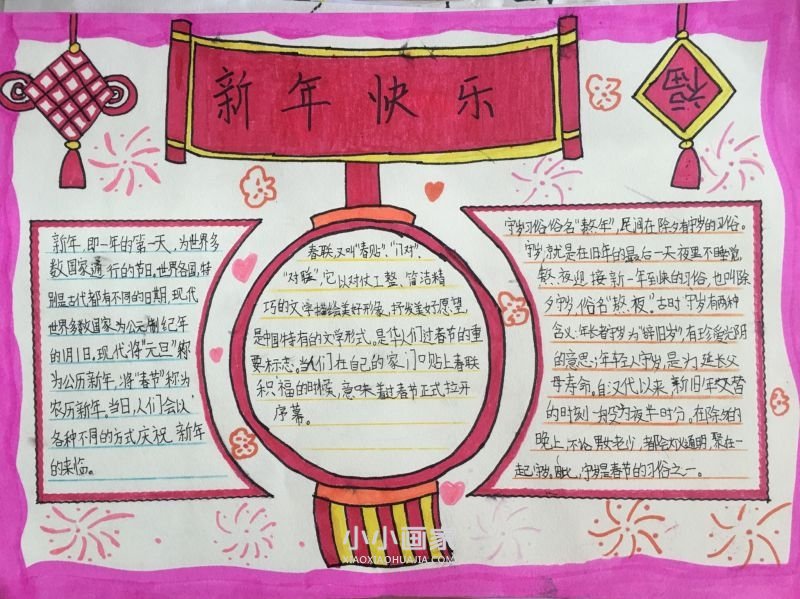 新年快乐
福
新年,即一年的第一天,为世界多
数国家通行的节日。世界各国,特
别是古代都有不同的日期,现代
世界多数国家为公元制纪年
的1月1日,现代将“元旦”称
为公历新年,将“春节”称为
农历新年。当日,人们会以
各种不同的方式庆祝新年
的来临。
春联,又叫“春贴”、“门对”、
“对联”,它以对仗工整、简洁精
巧的文字描绘美好形象,抒发美好愿望
是中国特有的文学形式。是华人们过春节的重
要标志。当人们在自己的家门口贴上春联
积福的时候,意味着过春节正式拉开
序幕。
守岁习俗,俗名“熬年”,民间在除夕有守岁的习俗。
守岁,就是在旧年的最后一天夜里不睡觉,
熬夜迎接新一年到来的习俗,也叫除
夕守岁,俗名“熬板”。古时守岁有两种
含义:年长者守岁为“辞旧岁”,有珍爱光阴
的意思;年轻人守岁,是为延长父
母寿命。自汉代以来,新旧年交替
的时刻一般为夜半时分。在除夕的
晚上,不论男女老少,都会灯火通明,聚在一
起守岁,因此,守岁是春节的习俗之一。
小小画家
XIAOXIAOHUAJIA.COM